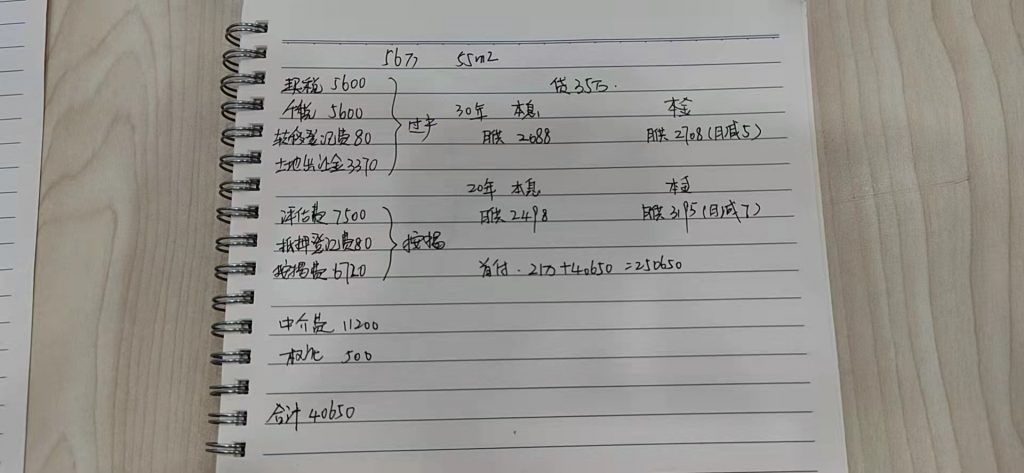 56万 55m2
契税 5600
贷35万.
个税 5600
30年 本息 本金
转移登记费 80
过户
月供 2088 月供 2708(月减5)
土地出让金 3370
20年 本息 本金
评估费 7500
月供 2498 月供 3195(月减7)
抵押登记费 80
按揭
按揭费 6720
首付. 21万+40650=250650
中介费 11200
权证 500
合计 40650